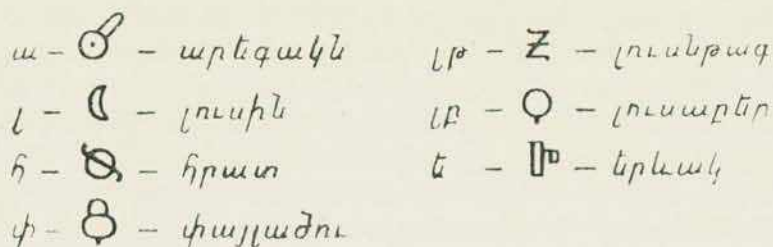 ա – – արեգակն
լ – – լուսին
հ – – հրատ
փ – – փայլածու
լթ – – լուսնթագ
լբ – – լուսաբեր
ե – – երևակ